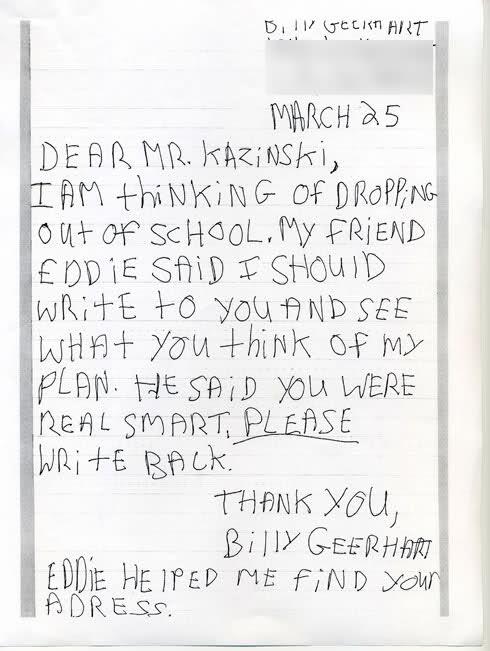 BILLY GEERHART
MARCH 25
DEAR MR. KAZINSKI,
I AM thiNKiNG Of DROPPiNG
Out OF SCHOOL. My fRiEND
EDDiE SAiD I SHOUlD
WRitE to YOU AND SEE
WHAt YOU think OF MY
PLAN. HE SAiD YOU WERE
REAL SMART. PLEASE
WRitE BACK.
THANK YOU,
BillY GEERHARt
EDDiE HElPED ME FiND YOUR
ADRESS.